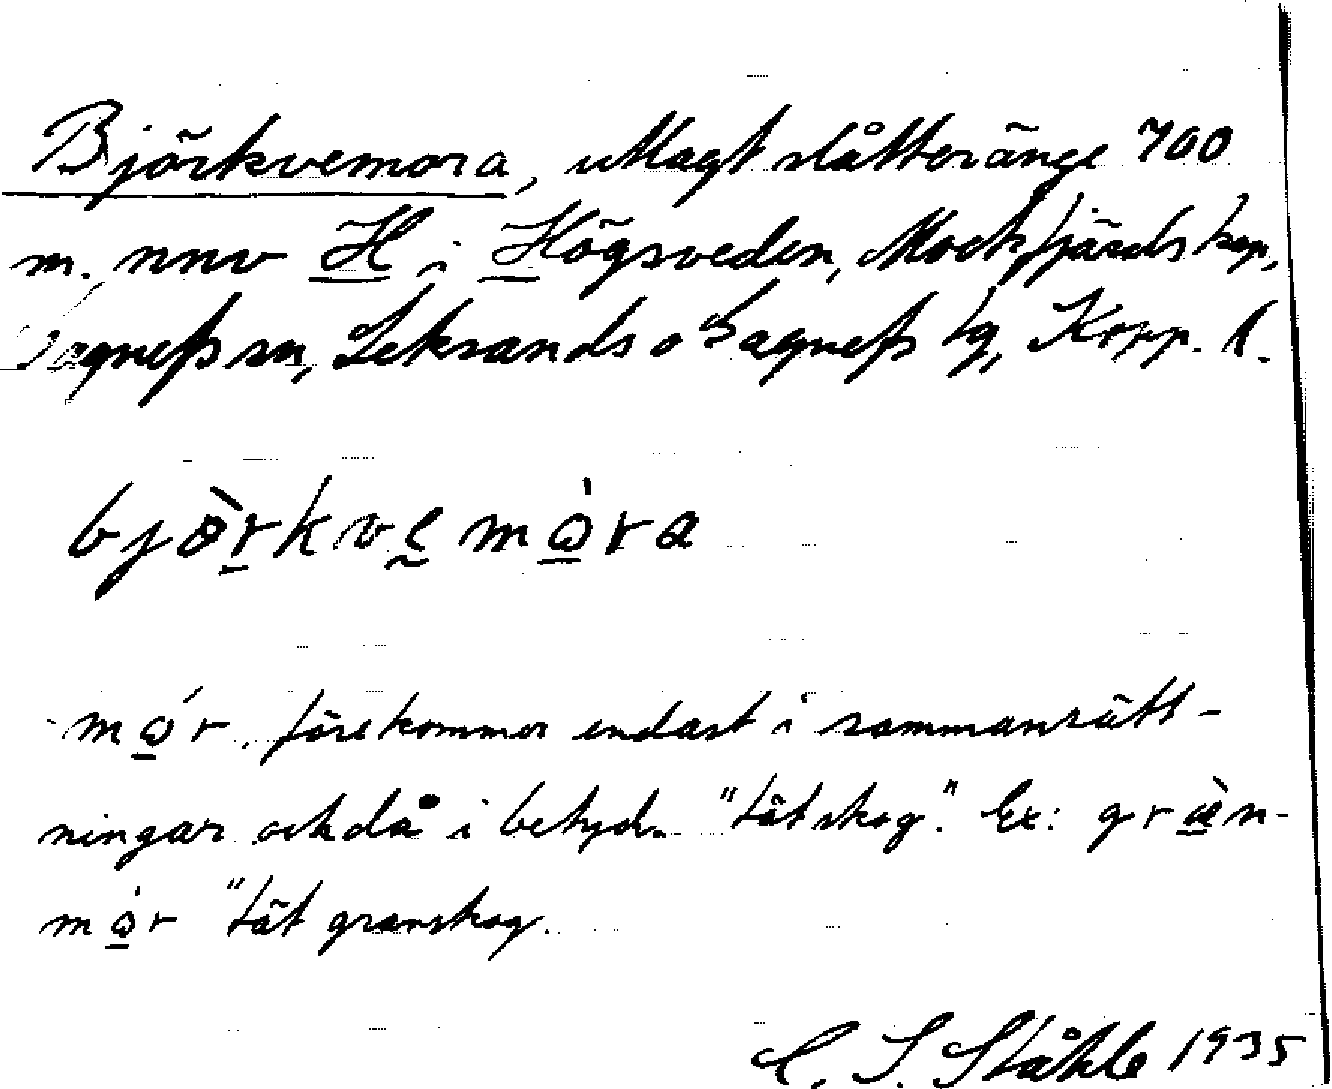 Björkvemora, utlagt slåtteränge 700
m. nnv H i Högsveden, Mockfjärds kap,
Gagnefs sn, Leksands o Gagnefs tg, Kopp. l.
björkvemòra
mór, förekommer endast i sammansätt-
ningar och då i betyd. "tät skog". Ex: græ̀n-
mór "tät granskog.
C. I. Ståhle 1935